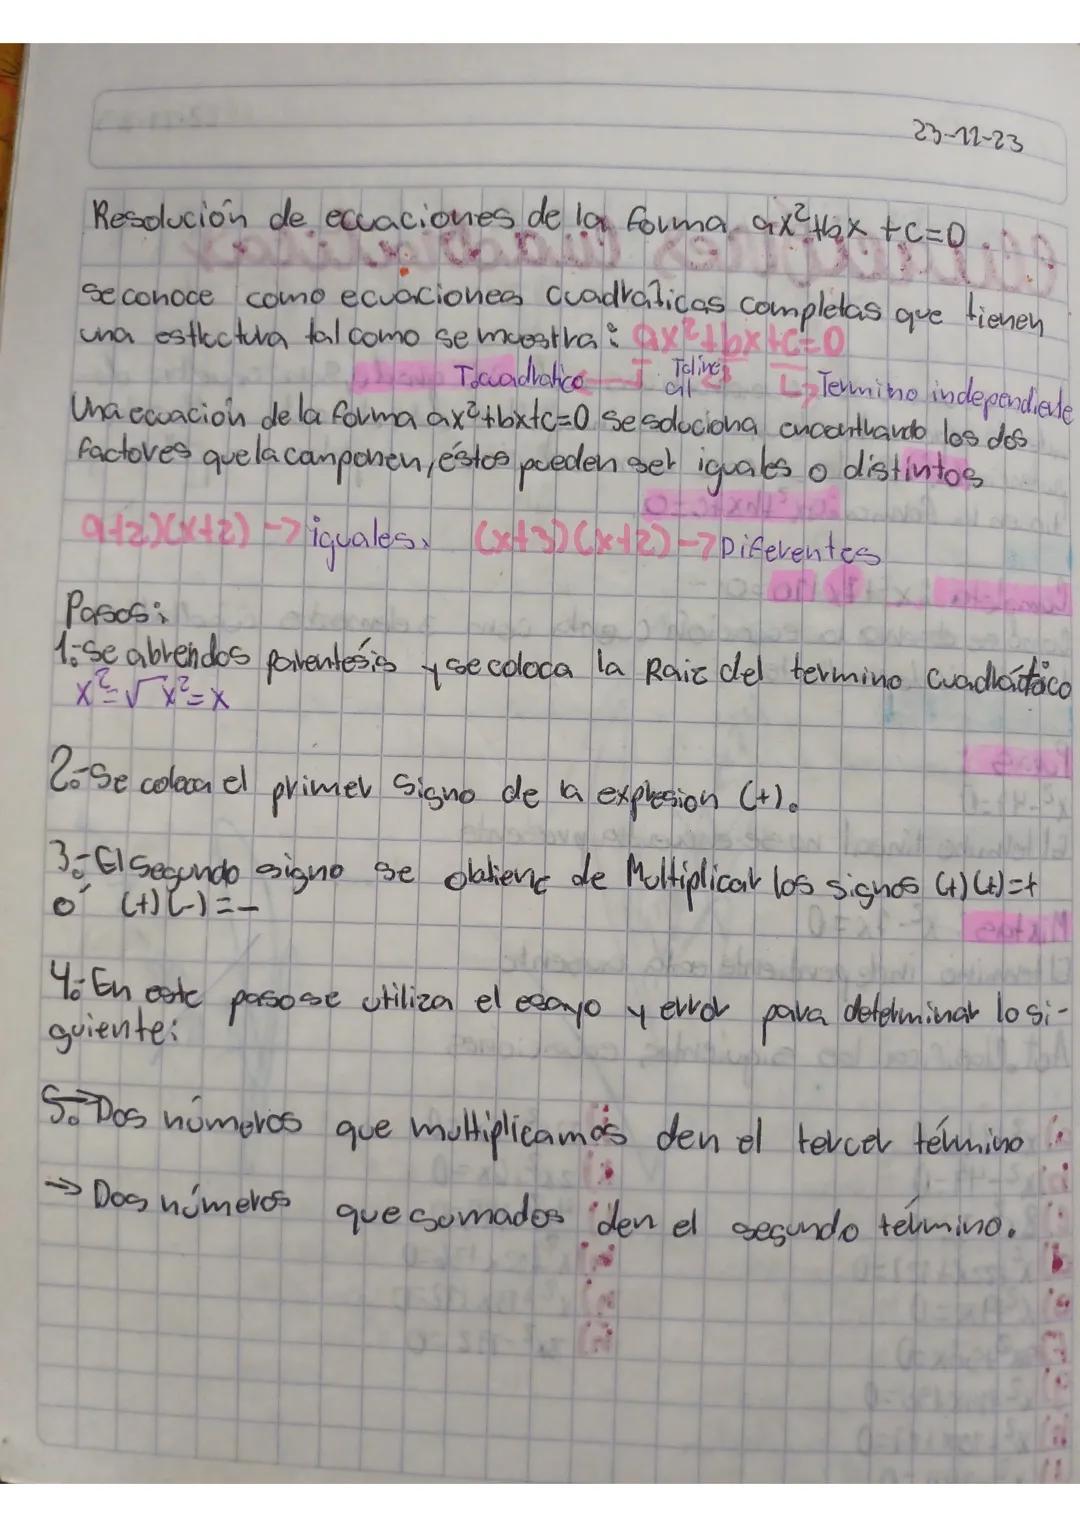 23-11-23
Resolución de ecuaciones de la forma ax²+bx+c=0
se conoce como ecuaciones cuadraticas completas que tienen
una estructura tal como se muestra: ax²+bx+c=0
T.cuadratico T.linea Termino independiente
al
Una ecuación de la forma ax²+bx+c=0 se soluciona encontrando los dos
factores que la componen, éstos pueden ser iguales o distintos
+2)(x+2) -> iguales. (x+3)(x+2) -> Diferentes
Pasos:
1.-Se abren dos paréntesis y se coloca la Raiz del termino cuadrático
x²=√x²=x
2.-Se coloca el primer signo de la expresion (+).
3.-El segundo signo se obtiene de Multiplicar los signos (+)(+)=+
ó (+)(-)=-
4.-En este paso se utiliza el esayo y error para determinar lo si-
guiente:
5.-Dos números que multiplicamos den el tercer término
→ Dos números que sumados den el segundo término.